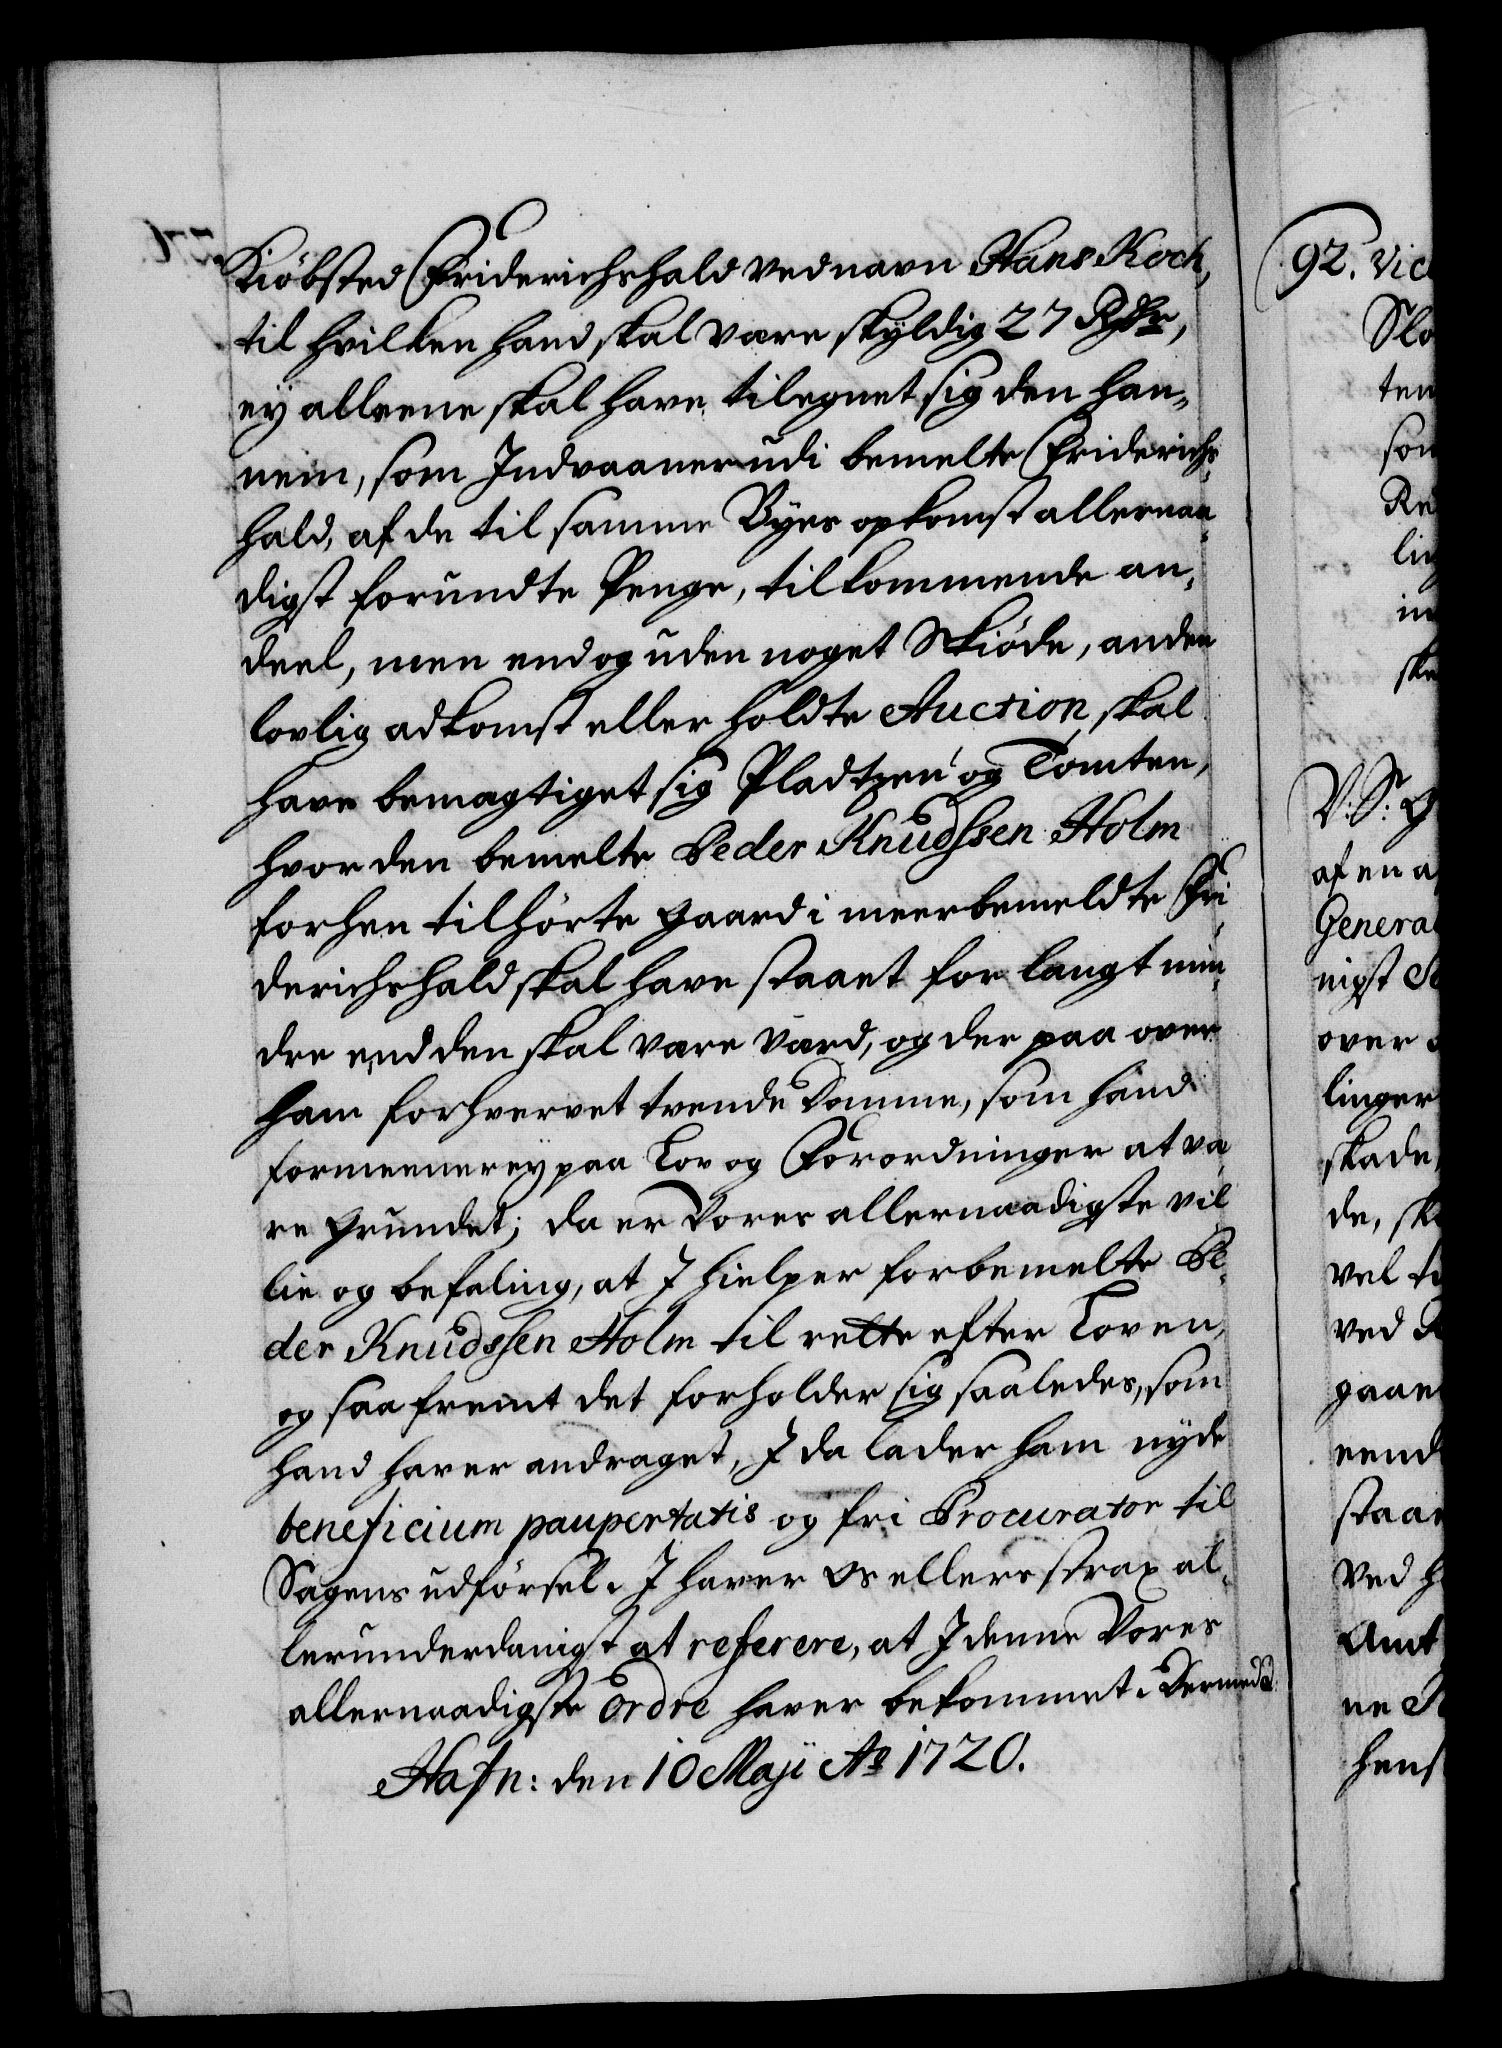 Kiöbsted Friderichshald ved navn Hans Koch,
til hvilken hand skal være skyldig 27 Rdr,
ey alleene skal have tilegnet sig den han„
nem, som Indvaaner udi bemelte Friderichs„
hald, af de til samme Byes opkomst allernaa„
digst forundte Penge, tilkommende an„
deel, men endog uden noget Skiöde, anden
lovlig adkomst eller holdte Auction, skal
have bemagtiget sig Pladtzen og Tomten,
hvor den bemelte Peder Knudssen Holm
forhen tilhörte gaard i meerbemeldte Fri„
derichshald skal have staaet for langt min„
dre end den skal være værd, og der paa over
ham forhvervet tvende Domme, som hand
formeener ey paa Lov og Forordninger at væ„
re grundet; da er Vores allernaadigste vil„
lie og befaling, at I hielper forbemelte Pe„
der Knudssen Holm til rette efter Loven,
og saafremt det forholder sig saaledes, som
hand haver andraget, I da lader ham nyde
beneficium paupertatis og fri Procurator til
Sagens udförsel. I haver Os ellers strax al„
lerunderdanigst at referere, at I denne Vores
allernaadigste Ordre haver bekommet. Dermed &
Hafn: den 10 Maji Aº 1720.
92. Vic
Slo
ten
som
Re
lig
in
ske
V: S: G
af en a
General
nigst
over
linger
skade,
de, sk
vel ti
ved
gaar
eend
staar
ved h
Amt
ne
hens